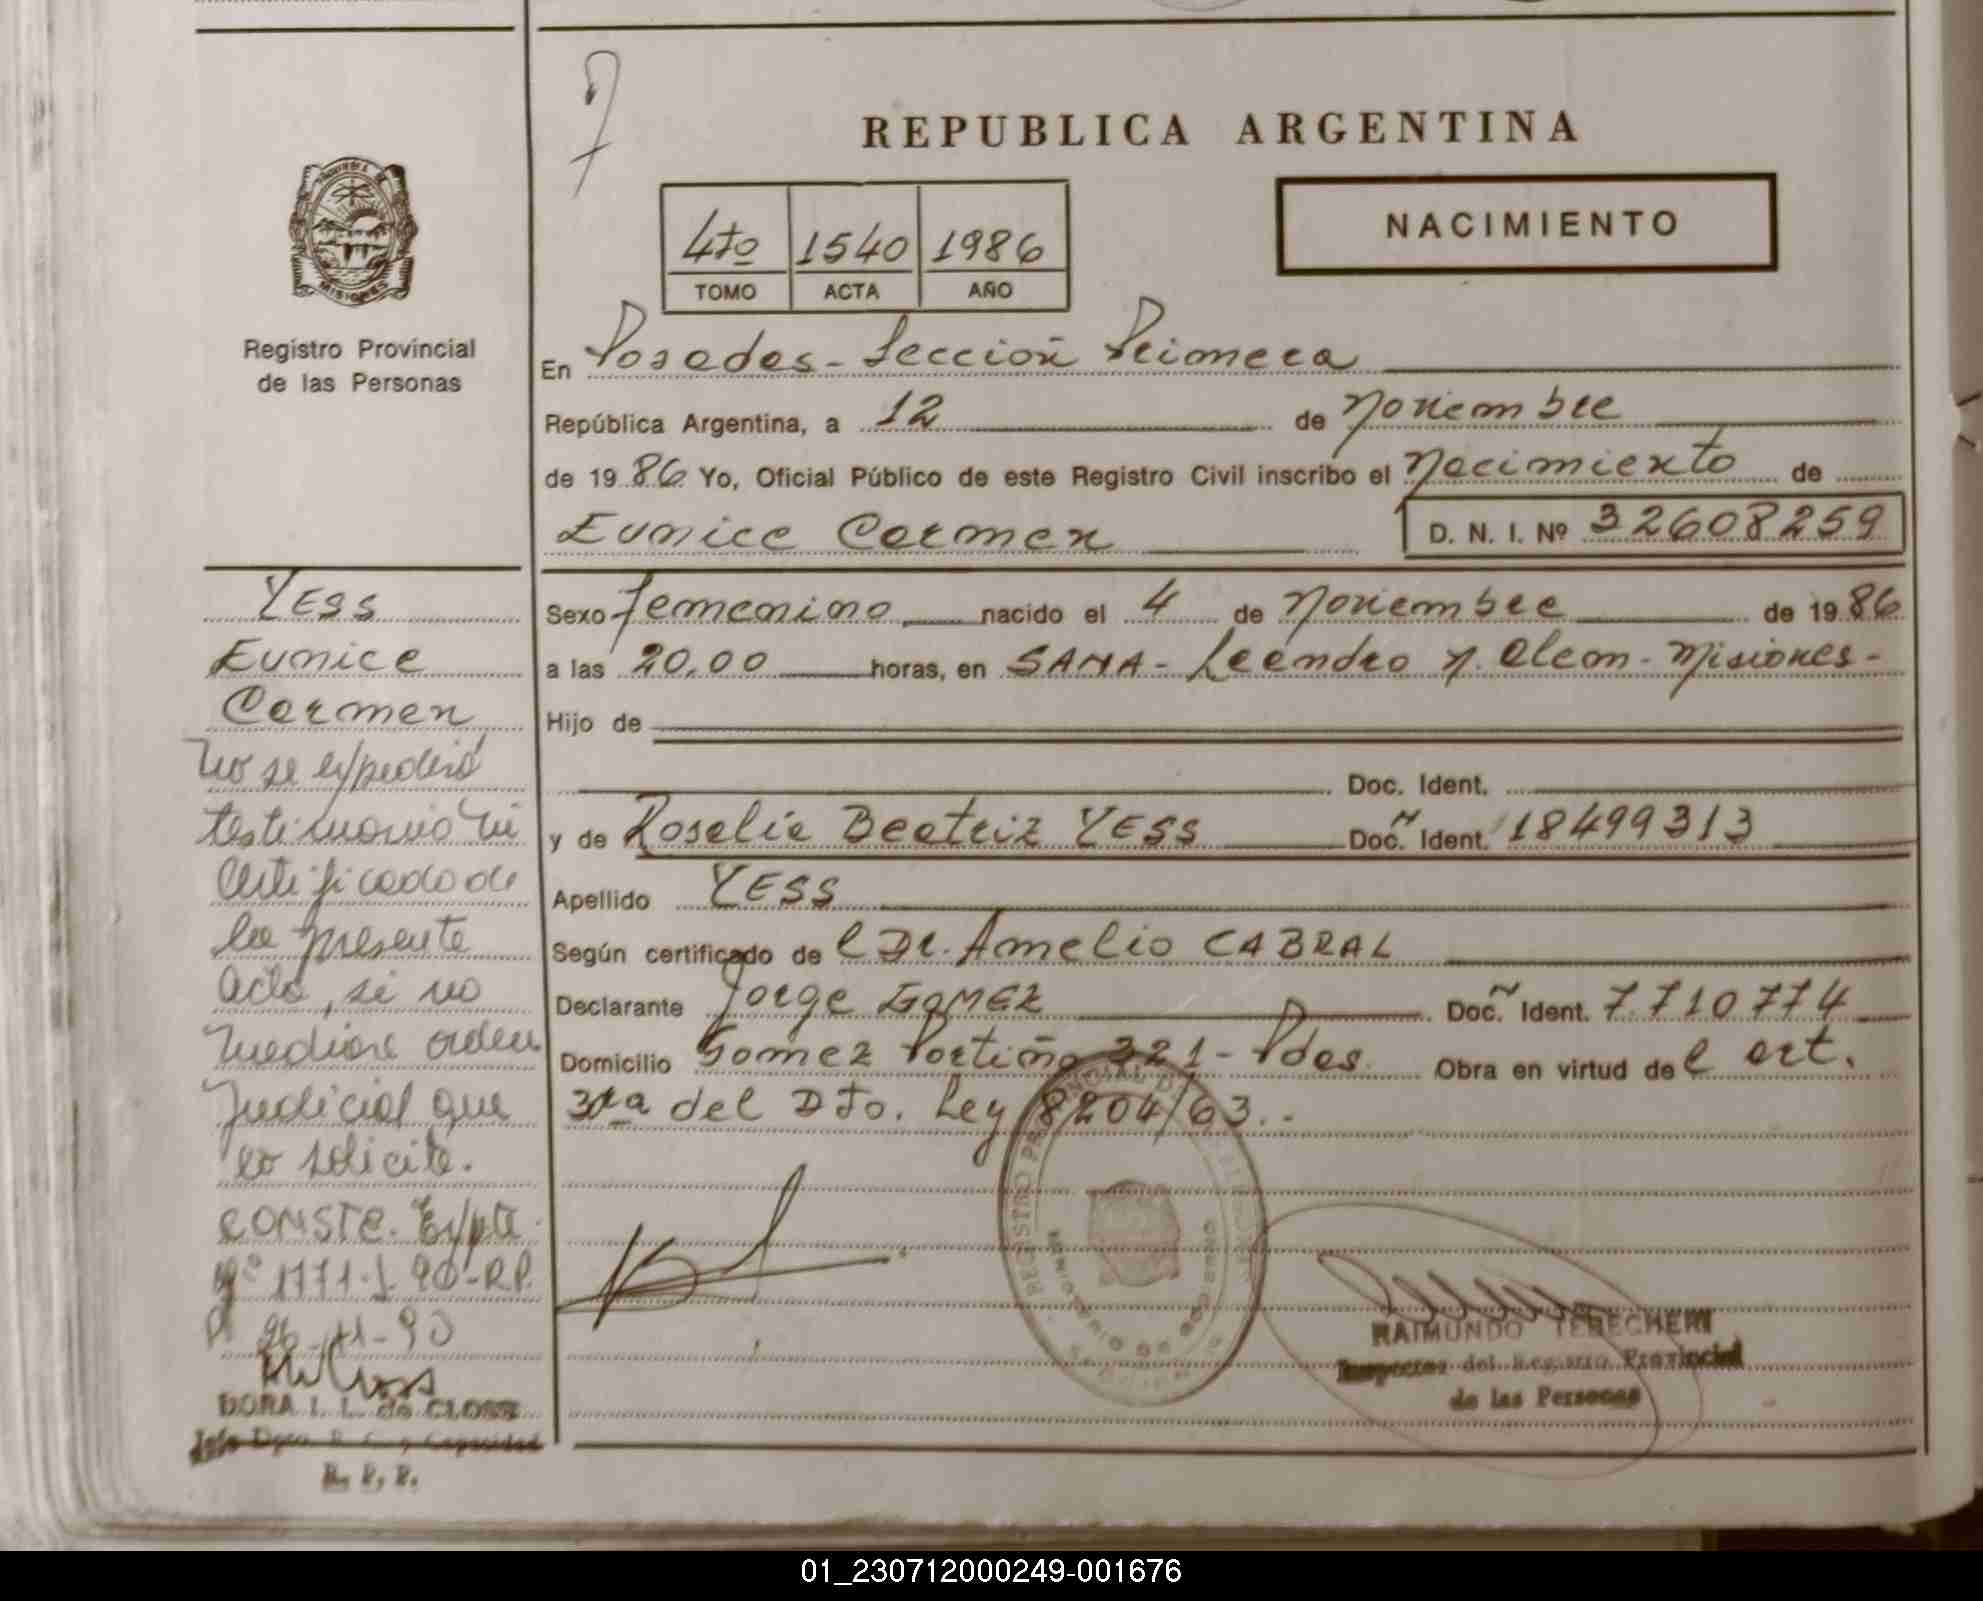 REPUBLICA ARGENTINA
NACIMIENTO
4to 1540 1986
TOMO ACTA AÑO
MISIONES
Registro Provincial
de las Personas
En Posadas - Sección Primera
República Argentina, a 12 de Noviembre
de 19 86 Yo, Oficial Público de este Registro Civil inscribo el Nacimiento de
Eunice Carmen D. N. I. Nº 32608259
Sexo femenino nacido el 4 de Noviembre de 19 86
a las 20,00 horas, en SAMA - Leandro N. Alem - Misiones -
Hijo de
Doc. Ident.
y de Roselie Beatriz YESS Doc. Ident. 18499313
Apellido YESS
Según certificado de l Dr. Amelio CABRAL
Declarante Jorge GOMEZ Doc. Ident. 7.710774
Domicilio Gomez Portiño 321 - Pdas. Obra en virtud de l art.
30ra del Dto. Ley 8204/63..
YESS
Eunice
Carmen
No se expedirá
testimonio ni
certificado de
la presente
acta, si no
mediare orden
judicial que
lo solicite.
CONSTE. Expte.
Nº 1771-J-90-R.P.
P. 26-11-90
DORA I. L. de CLOSS
Jefe Dpto. E. C. y Capacidad
R. P. P.
REGISTRO PROVINCIAL DE LAS PERSONAS
MINISTERIO DE GOBIERNO
MISIONES
RAIMUNDO TERECHERI
Inspector del Registro Provincial
de las Personas
01_230712000249-001676